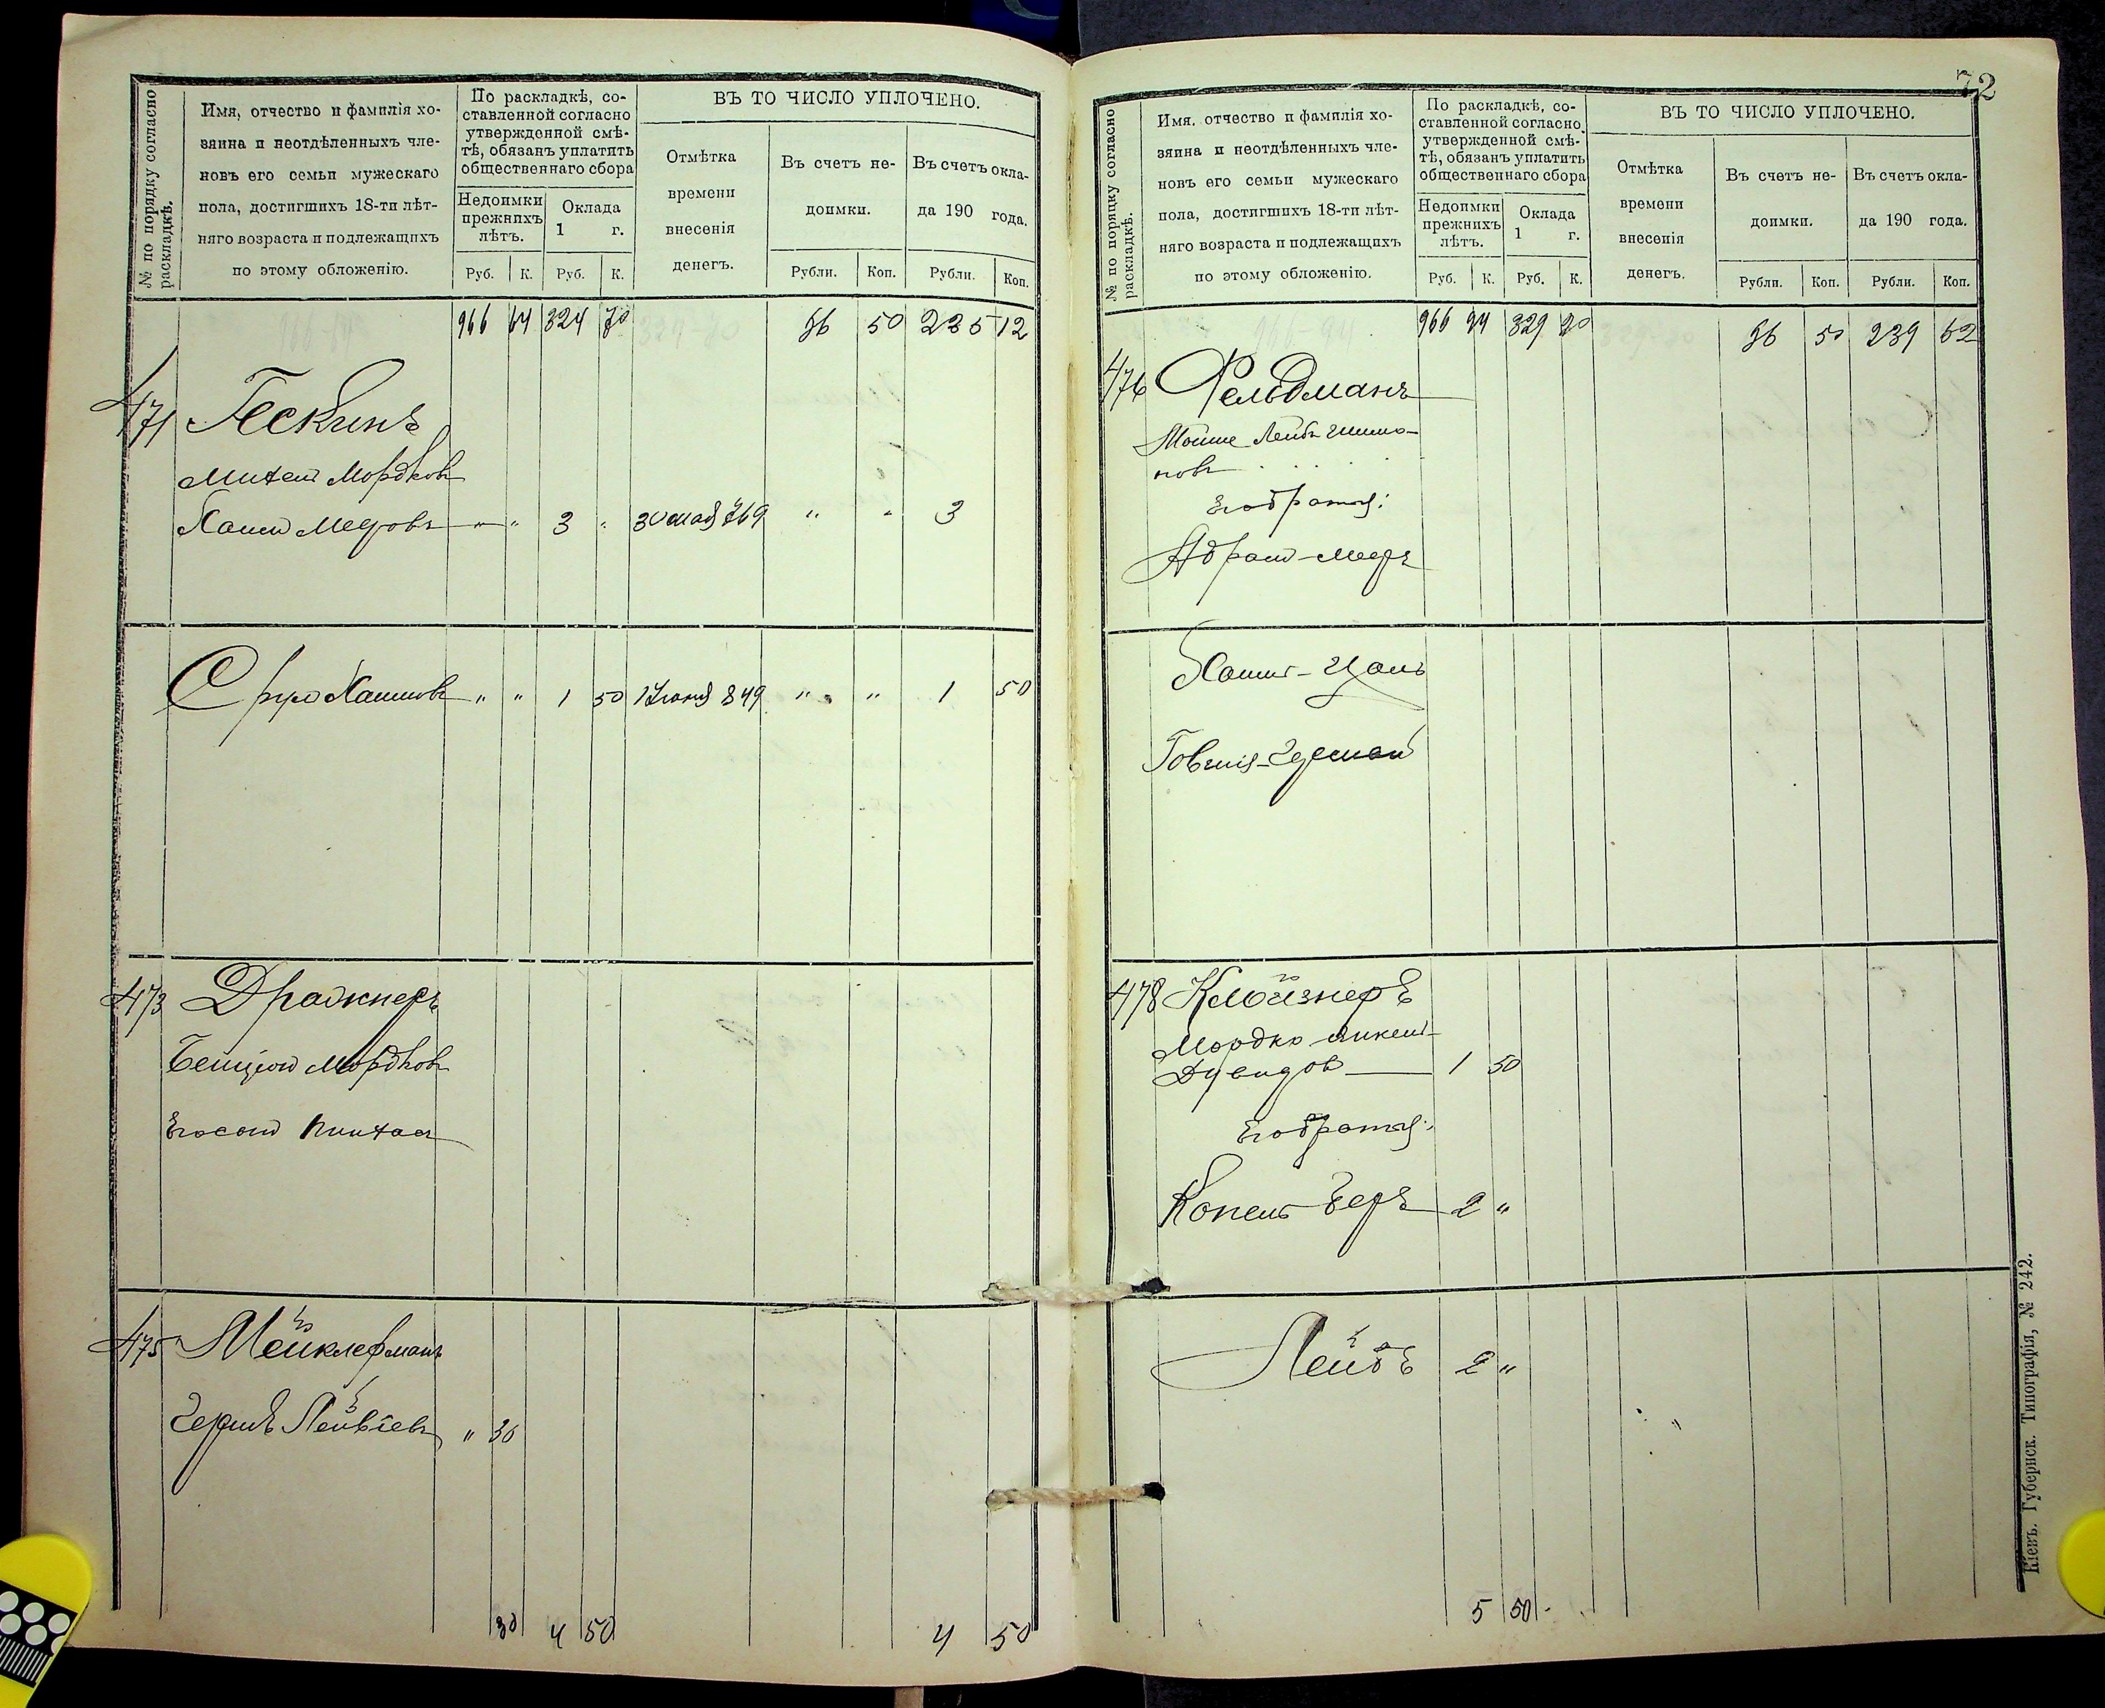 № по порядку согласно раскладкѣ.
Имя, отчество и фамилія хо-
зяина и неотдѣленныхъ чле-
новъ его семьи мужескаго
пола, достигшихъ 18-ти лѣт-
няго возраста и подлежащихъ
по этому обложенію.
По раскладкѣ, со-
ставленной согласно
утвержденной смѣ-
тѣ, обязанъ уплатить
общественнаго сбора
Недоимки
прежнихъ
лѣтъ.
Оклада
1 г.
Руб. К. Руб. К.
ВЪ ТО ЧИСЛО УПЛОЧЕНО.
Отмѣтка
времени
внесенія
денегъ.
Въ счетъ не-
доимки.
Въ счетъ окла-
да 190 года.
Рубли. Коп. Рубли. Коп.
966 64 324 70 56 50 235 12
471 Пескинъ
Михель Мордковъ
Хаим Мееровъ " " 3 " 30 мая 769 " " 3
Сруль Хаимовъ " " 1 50 849 " " 1 50
473 Дражнеръ
Бенціон Мордков
Его сын Пинхас
475 Мейклерманъ
Гершъ Лейвіевъ " 30
30 4 50 4 50
72
№ по порядку согласно раскладкѣ.
Имя, отчество и фамилія хо-
зяина и неотдѣленныхъ чле-
новъ его семьи мужескаго
пола, достигшихъ 18-ти лѣт-
няго возраста и подлежащихъ
по этому обложенію.
По раскладкѣ, со-
ставленной согласно
утвержденной смѣ-
тѣ, обязанъ уплатить
общественнаго сбора
Недоимки
прежнихъ
лѣтъ.
Оклада
1 г.
Руб. К. Руб. К.
ВЪ ТО ЧИСЛО УПЛОЧЕНО.
Отмѣтка
времени
внесенія
денегъ.
Въ счетъ не-
доимки.
Въ счетъ окла-
да 190 года.
Рубли. Коп. Рубли. Коп.
966 94 329 20 56 50 239 62
476 Фельдманъ
Мошие Лейбъ Шимо-
новъ
Его братья:
Абрам-Мееръ
Хаим-
Товия-
478 Клойзнеръ
Мордко
1 50
Его братья:
Копель Беръ 2 "
Лейбъ 2 "
5 50
Кіевъ. Губернск. Типографія, № 242.